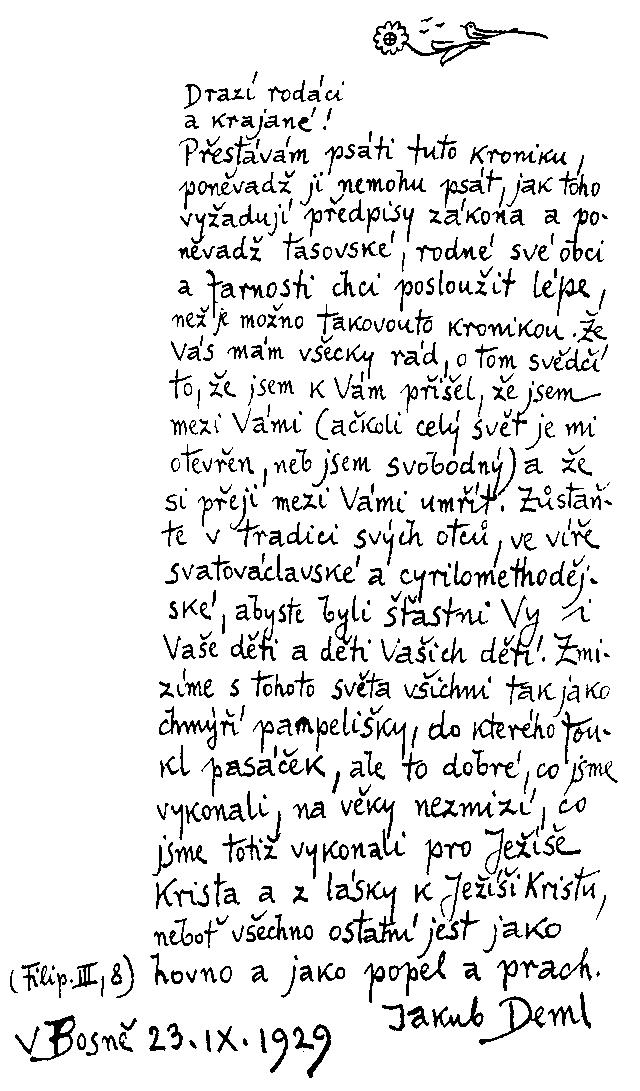 Drazí rodáci
a krajané!
Přestávám psáti tuto kroniku,
poněvadž ji nemohu psát, jak toho
vyžadují předpisy zákona a po-
něvadž tasovské, rodné své obci
a farnosti chci posloužit lépe,
než je možno takovouto kronikou. Že
Vás mám všecky rád, o tom svědčí
to, že jsem k Vám přišel, že jsem
mezi Vámi (ačkoli celý svět je mi
otevřen, neb jsem svobodný) a že
si přeji mezi Vámi umřít. Zůstaň-
te v tradici svých otců, ve víře
svatováclavské a cyrilomethoděj-
ské, abyste byli šťastni Vy i
Vaše děti a děti Vašich dětí. Zmi-
zíme s tohoto světa všichni tak jako
chmýří pampelišky, do kterého fou-
kl pasáček, ale to dobré, co jsme
vykonali, na věky nezmizí, co
jsme totiž vykonali pro Ježíše
Krista a z lásky k Ježíši Kristu,
neboť všechno ostatní jest jako
(Filip. III, 8) hovno a jako popel a prach.
Jakub Deml
V Bosně 23. IX. 1929